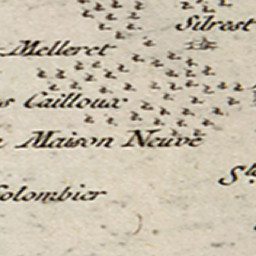 Silrest
Melleret
s Cailloux
Maison Neuve
Colombier